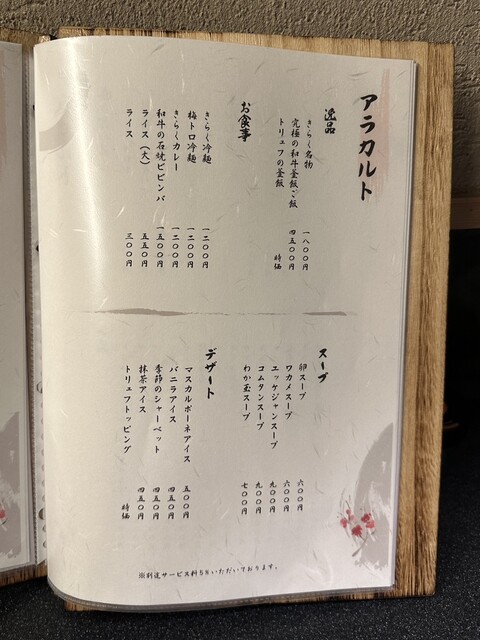 アラカルト
逸品
きらく名物
究極の和牛釜飯ご飯 一八〇〇円
トリュフの釜飯 四五〇〇円
時価
お食事
きらく冷麺 一二〇〇円
梅トロ冷麺 一二〇〇円
きらくカレー 一二〇〇円
和牛の石焼ビビンバ 一五〇〇円
ライス（大） 五五〇円
ライス 三〇〇円
スープ
卵スープ 六〇〇円
ワカメスープ 六〇〇円
エッケジャンスープ 九〇〇円
コムタンスープ 九〇〇円
わか玉スープ 七〇〇円
デザート
マスカルポーネアイス 五〇〇円
バニラアイス 四五〇円
季節のシャーベット 四五〇円
抹茶アイス 四五〇円
トリュフトッピング 時価
※別途サービス料5%いただいております。